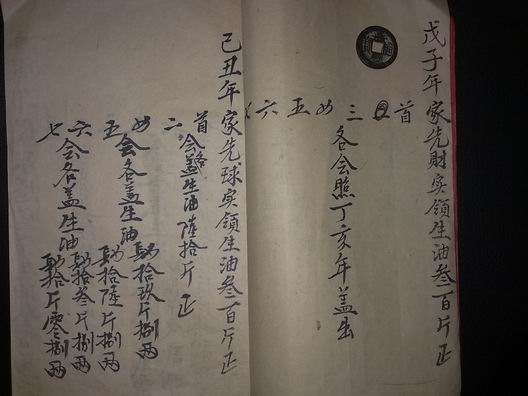 戊子年家先財实領生油叁百斤正
首 三 四 五 六
各会照丁亥年盖生
己丑年家先球实領生油叁百斤正
首二会盖生油陸拾斤正
四五会各盖生油
拾玖斤捌两
拾陸斤捌两
六七会各盖生油
拾叁斤捌两
拾斤零捌两